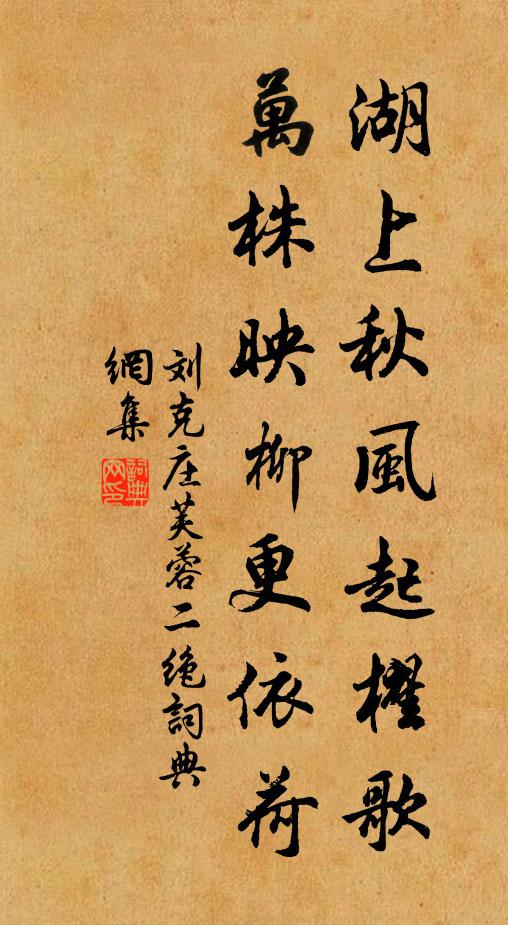 湖上秋風起櫂歌
萬株映柳更依荷
刘克庄芙蓉二绝詞典
網集
詞典网印